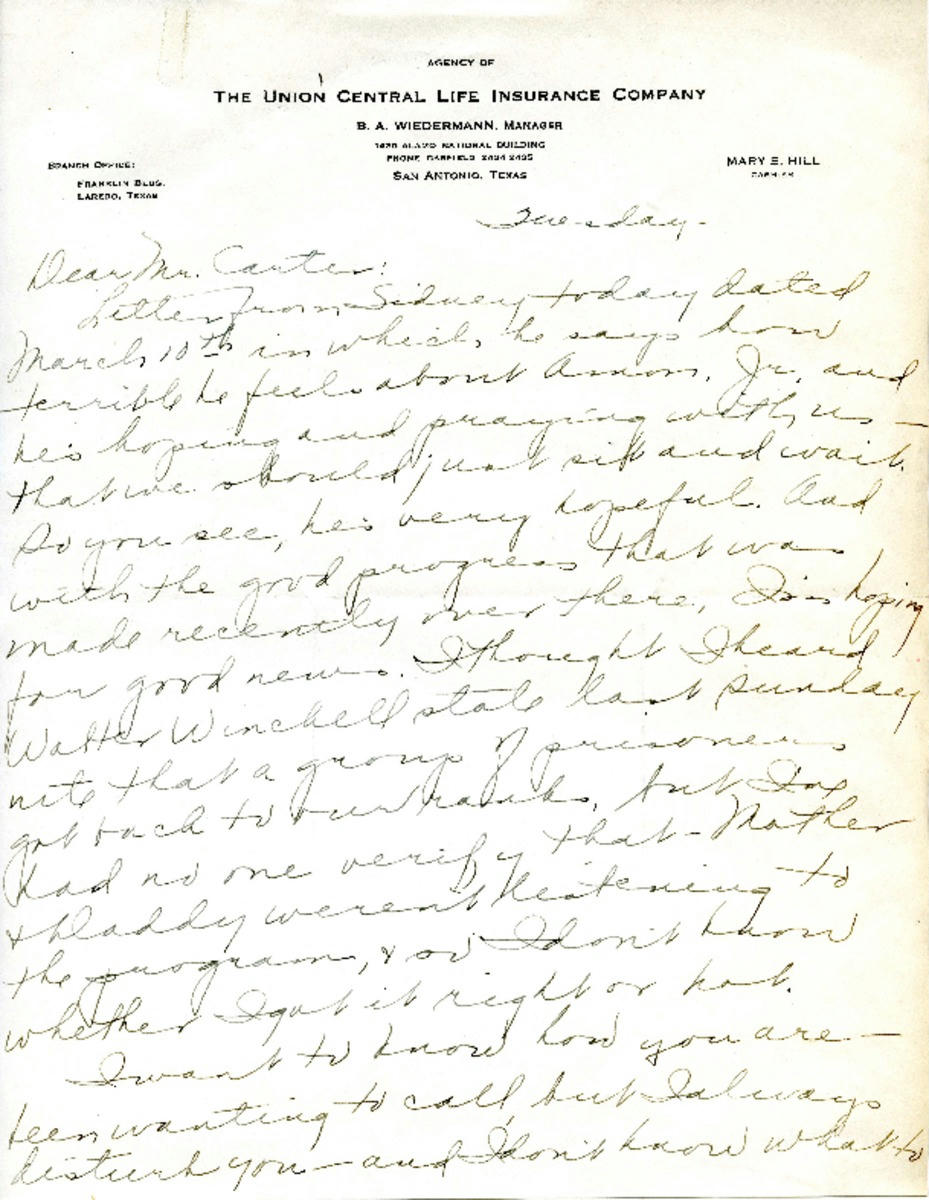 AGENCY OF
THE UNION CENTRAL LIFE INSURANCE COMPANY
B. A. WIEDERMANN, MANAGER
1420 ALAMO NATIONAL BUILDING
PHONE GARFIELD 2434 2435
SAN ANTONIO, TEXAS
BRANCH OFFICE:
FRANKLIN BLDG.
LAREDO, TEXAS
MARY E. HILL
CASHIER
Tuesday -
Dear Mr. Carter:
Letter from Sidney today dated
March 10th in which he says how
terrible he feels about Amon, Jr. and
he's hoping and praying with us —
that we should just sit and wait.
So you see, he's very hopeful. And
with the good progress that was
made recently over there, I'm hoping
for good news. I thought I heard
Walter Winchell state last Sunday
nite that a group of prisoners
got back to our ranks, but I've
had no one verify that - Mother
& Daddy weren't listening to
the program, & so I don't know
whether I got it right or not.
I want to know how you are —
been wanting to call, but I always
disturb you — and I don't know what to